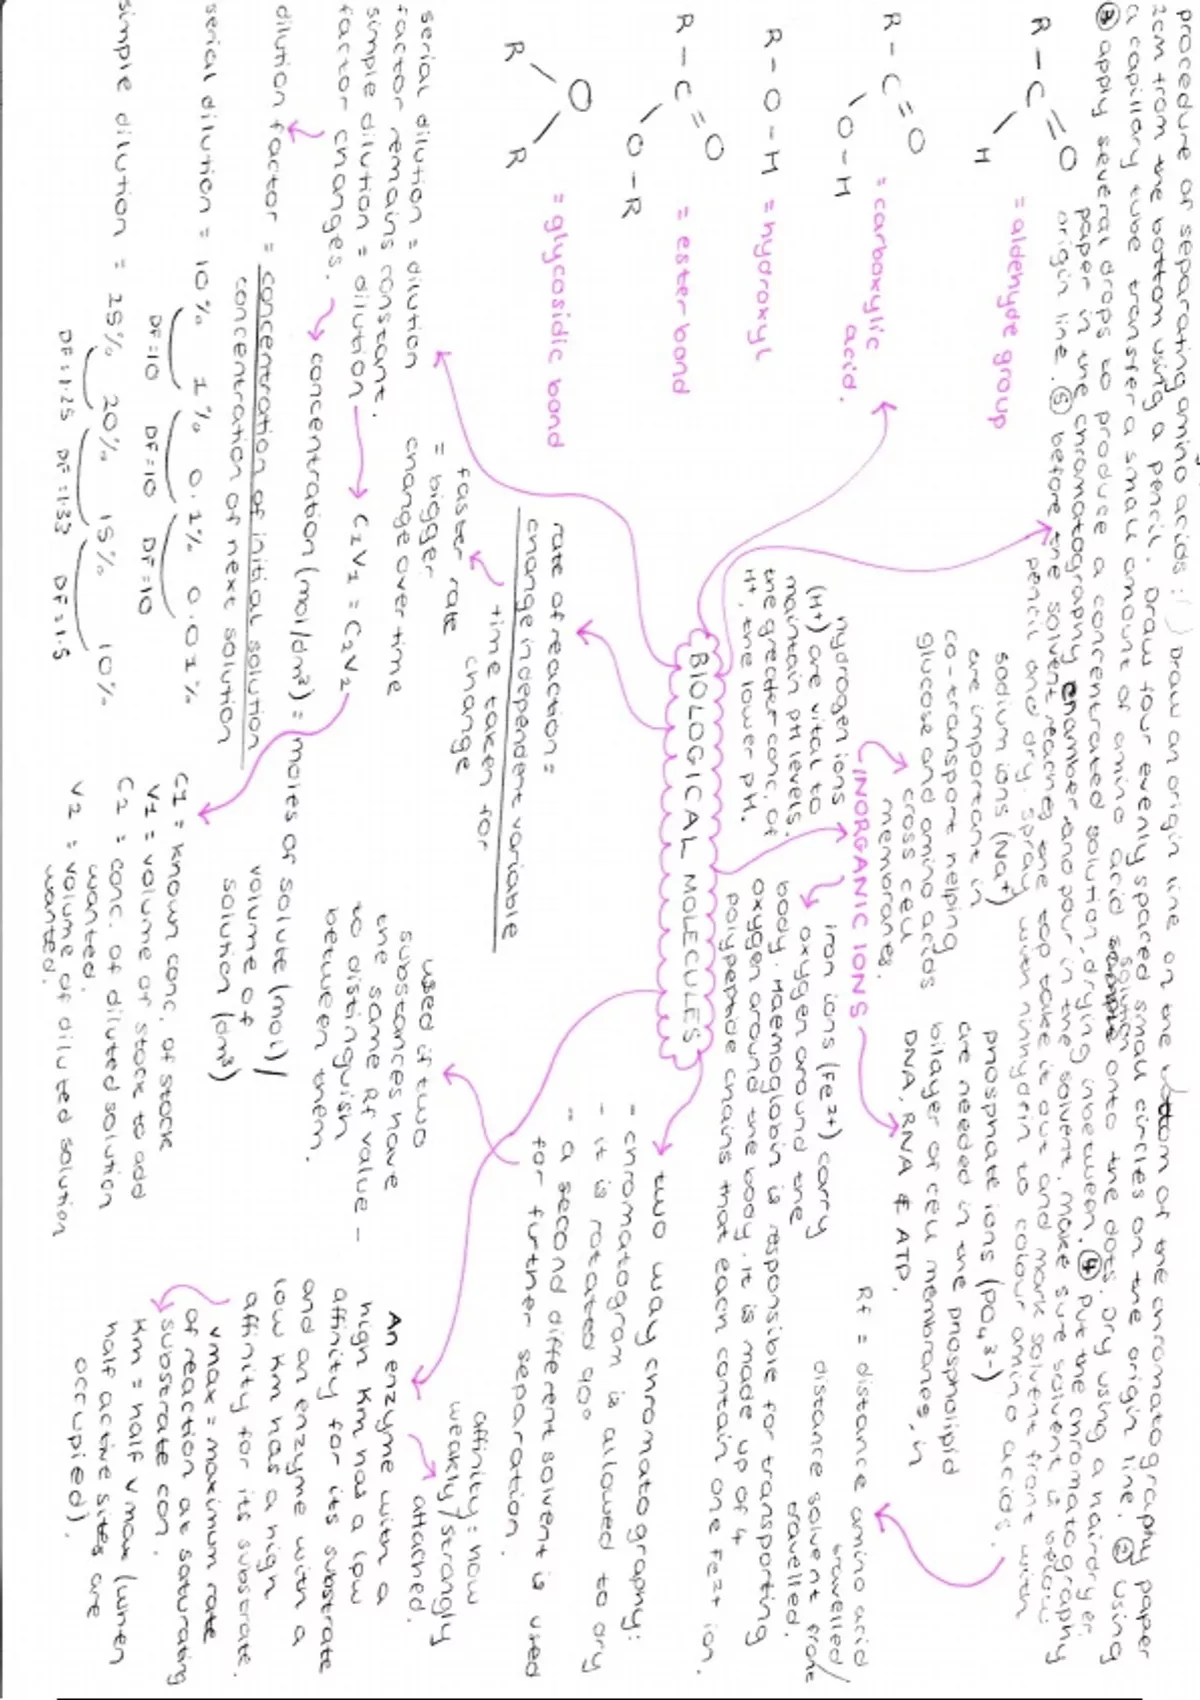 procedure of separating amino acids :) ① Draw an origin line on the bottom of the chromatography paper
2cm from the bottom using a pencil. Draw four evenly spaced small circles on the origin line. ② using
a capillary tube transfer a small amount of amino acid solution onto the dots. Dry using a hairdryer.
③ apply several drops to produce a concentrated solution, drying inbetween. ④ put the chromatography
paper in the chromatography chamber and pour in the solvent. make sure solvent is below
origin line. ⑤ before the solvent reaches the top take it out and mark solvent front with
pencil and dry. spray with ninhydrin to colour amino acids.
R - C = O
H
= aldehyde group
R - C = O
O - H
= carboxylic
acid.
R - O - H = hydroxyl
R - C = O
O - R
= ester bond
O
R
R
= glycosidic bond
sodium ions (Na+)
are important in
co-transport helping
glucose and amino acids
cross cell
membranes.
INORGANIC IONS
hydrogen ions
(H+) are vital to
maintain pH levels.
the greater conc. of
H+, the lower pH.
phosphate ions (PO4 3-)
are needed in the phospholipid
bilayer of cell membranes, in
DNA, RNA & ATP.
iron ions (Fe2+) carry
oxygen around the
body. Haemoglobin is responsible for transporting
oxygen around the body. it is made up of 4
polypeptide chains that each contain one Fe2+ ion.
Rf = distance amino acid
travelled/
distance solvent front
travelled.
BIOLOGICAL MOLECULES
two way chromatography:
- chromatogram is allowed to dry
- it is rotated 90°
- a second different solvent is used
for further separation.
used if two
substances have
the same Rf value -
to distinguish
between them.
rate of reaction =
change in dependent variable
time taken for
change
faster rate
= bigger
change over time
serial dilution = dilution
factor remains constant.
simple dilution = dilution
factor changes.
C1V1 = C2V2
concentration (mol/dm3) = moles of solute (mol) /
volume of
solution (dm3)
dilution factor = concentration of initial solution
concentration of next solution
serial dilution = 10% 1% 0.1% 0.01%
DF=10 DF=10 DF=10
simple dilution = 25% 20% 15% 10%
DF=1.25 DF=1.33 DF=1.5
C1 = known conc. of stock
V1 = volume of stock to add
C2 = conc. of diluted solution
wanted.
V2 = volume of diluted solution
wanted.
affinity: how
weakly/strongly
attached.
An enzyme with a
high Km has a low
affinity for its substrate
and an enzyme with a
low Km has a high
affinity for its substrate.
vmax = maximum rate
of reaction at saturating
substrate con.
Km = half vmax (when
half active sites are
occupied).